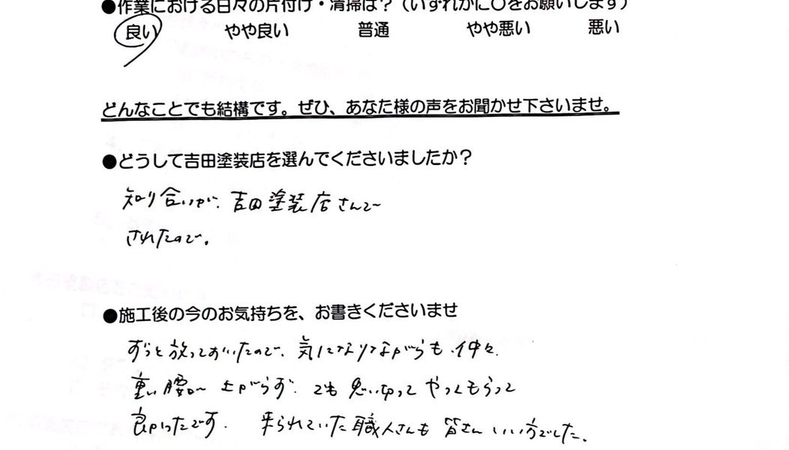 ●作業における日々の片付け・清掃は？（いずれかに〇をお願いします）
良い やや良い 普通 やや悪い 悪い
どんなことでも結構です。ぜひ、あなた様の声をお聞かせ下さいませ。
●どうして吉田塗装店を選んでくださいましたか？
知り合いが、吉田塗装店さんで
されたので。
●施工後の今のお気持ちを、お書きくださいませ
ずっと放っておいたので、気になりながらも、仲々
重い腰が上がらず、でも思い切ってやってもらって
良かったです。来られていた職人さんも皆さんいい方でした。